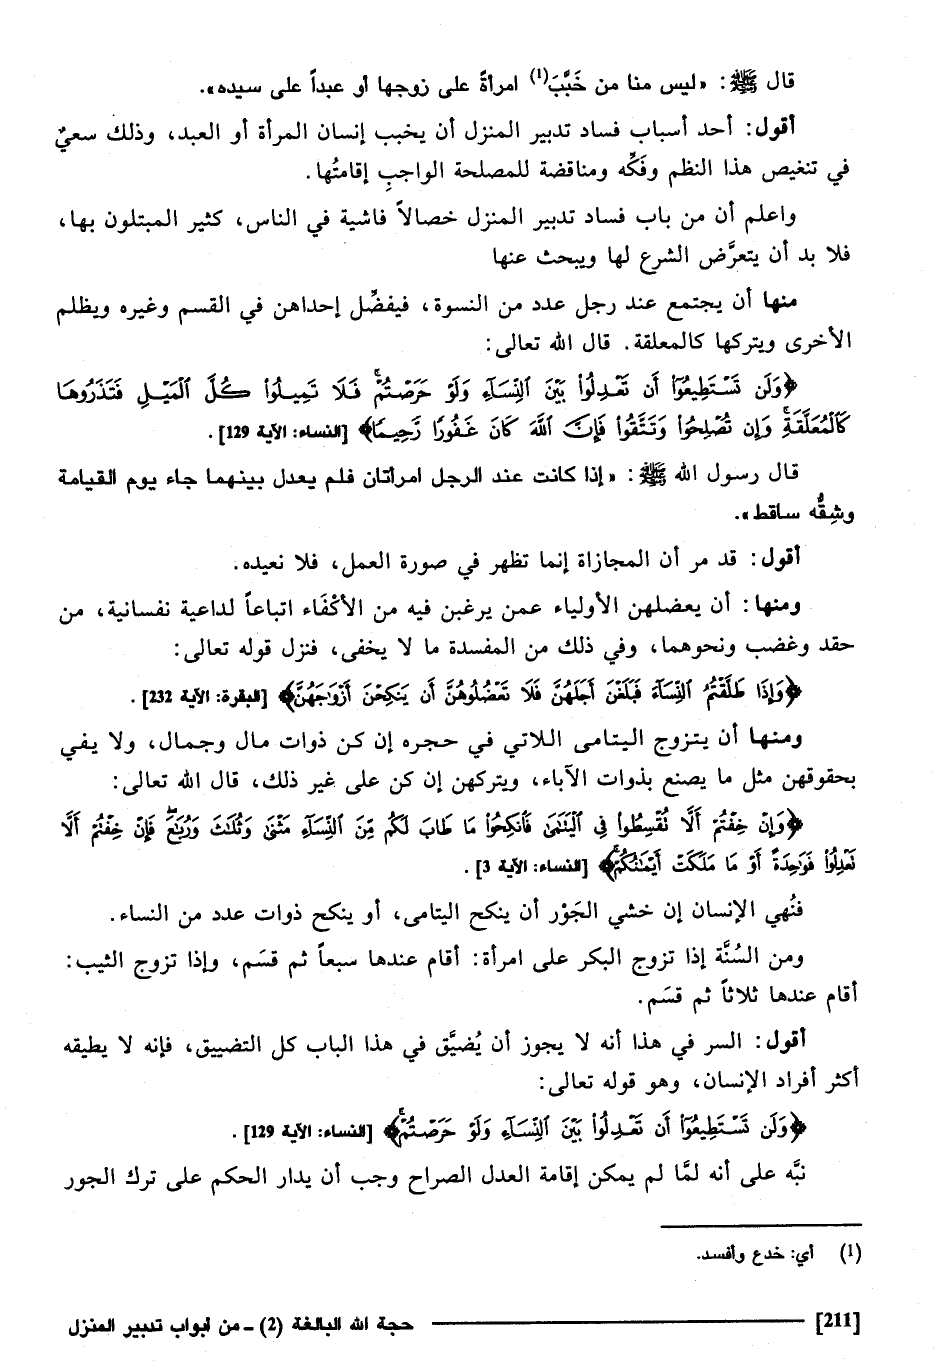 قال ﷺ: «ليس منا من خَبَّبَ(1) امرأةً على زوجها أو عبداً على سيده».
أقول: أحد أسباب فساد تدبير المنزل أن يخبب إنسان المرأة أو العبد، وذلك سعيٌ
في تنغيص هذا النظم وفَكِّه ومناقضة للمصلحة الواجبِ إقامتُها.
واعلم أن من باب فساد تدبير المنزل خصالاً فاشية في الناس، كثير المبتلون بها،
فلا بد أن يتعرَّض الشرع لها ويبحث عنها
منها أن يجتمع عند رجل عدد من النسوة، فيفضِّل إحداهن في القسم وغيره ويظلم
الأخرى ويتركها كالمعلقة. قال الله تعالى:
﴿وَلَن تَسْتَطِيعُوٓا۟ أَن تَعْدِلُوا۟ بَيْنَ ٱلنِّسَآءِ وَلَوْ حَرَصْتُمْ ۖ فَلَا تَمِيلُوا۟ كُلَّ ٱلْمَيْلِ فَتَذَرُوهَا
كَٱلْمُعَلَّقَةِ ۚ وَإِن تُصْلِحُوا۟ وَتَتَّقُوا۟ فَإِنَّ ٱللَّهَ كَانَ غَفُورًا رَّحِيمًا﴾ [النساء: الآية 129].
قال رسول الله ﷺ: «إذا كانت عند الرجل امرأتان فلم يعدل بينهما جاء يوم القيامة
وشِقُّه ساقط».
أقول: قد مر أن المجازاة إنما تظهر في صورة العمل، فلا نعيده.
ومنها: أن يعضلهن الأولياء عمن يرغبن فيه من الأكْفَاء اتباعاً لداعية نفسانية، من
حقد وغضب ونحوهما، وفي ذلك من المفسدة ما لا يخفى، فنزل قوله تعالى:
﴿وَإِذَا طَلَّقْتُمُ ٱلنِّسَآءَ فَبَلَغْنَ أَجَلَهُنَّ فَلَا تَعْضُلُوهُنَّ أَن يَنكِحْنَ أَزْوَٰجَهُنَّ﴾ [البقرة: الآية 232].
ومنها أن يتزوج اليتامى اللاتي في حجره إن كن ذوات مال وجمال، ولا يفي
بحقوقهن مثل ما يصنع بذوات الآباء، ويتركهن إن كن على غير ذلك، قال الله تعالى:
﴿وَإِنْ خِفْتُمْ أَلَّا تُقْسِطُوا۟ فِى ٱلْيَتَٰمَىٰ فَٱنكِحُوا۟ مَا طَابَ لَكُم مِّنَ ٱلنِّسَآءِ مَثْنَىٰ وَثُلَٰثَ وَرُبَٰعَ ۖ فَإِنْ خِفْتُمْ أَلَّا
تَعْدِلُوا۟ فَوَٰحِدَةً أَوْ مَا مَلَكَتْ أَيْمَٰنُكُمْ ۚ﴾ [النساء: الآية 3].
فنُهي الإنسان إن خشي الجَوْر أن ينكح اليتامى، أو ينكح ذوات عدد من النساء.
ومن السُنَّة إذا تزوج البكر على امرأة: أقام عندها سبعاً ثم قسَم، وإذا تزوج الثيب:
أقام عندها ثلاثاً ثم قسَم.
أقول: السر في هذا أنه لا يجوز أن يُضيَّق في هذا الباب كل التضييق، فإنه لا يطيقه
أكثر أفراد الإنسان، وهو قوله تعالى:
﴿وَلَن تَسْتَطِيعُوٓا۟ أَن تَعْدِلُوا۟ بَيْنَ ٱلنِّسَآءِ وَلَوْ حَرَصْتُمْ ۖ﴾ [النساء: الآية 129].
نبَّه على أنه لمَّا لم يمكن إقامة العدل الصراح وجب أن يدار الحكم على ترك الجور
(1) أي: خدع وأفسد.
[211] حجة الله البالغة (2) ـ من أبواب تدبير المنزل